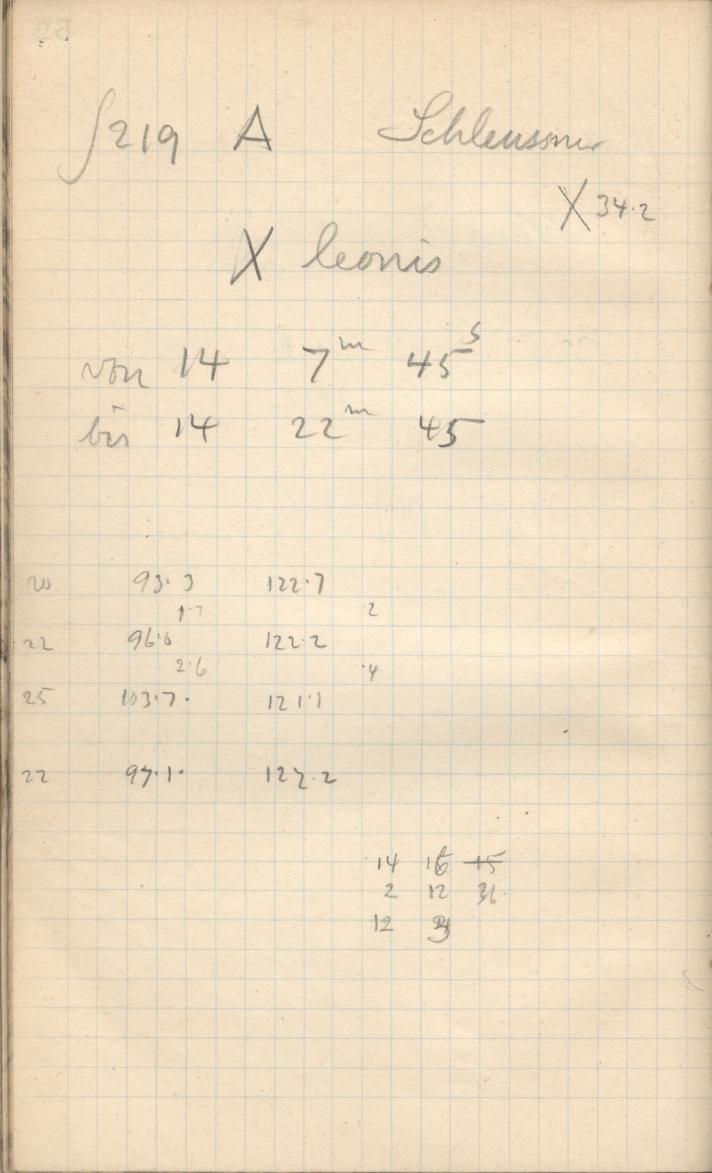 S219 A Schleussner
X 34.2
X leonis
von 14 7m 45s
bis 14 22m 45
20 93.3 122.7
1.7 .2
22 96.6 122.2
2.6 .4
25 103.7. 121.1
22 97.1. 122.2
14 15
2 12 36
12